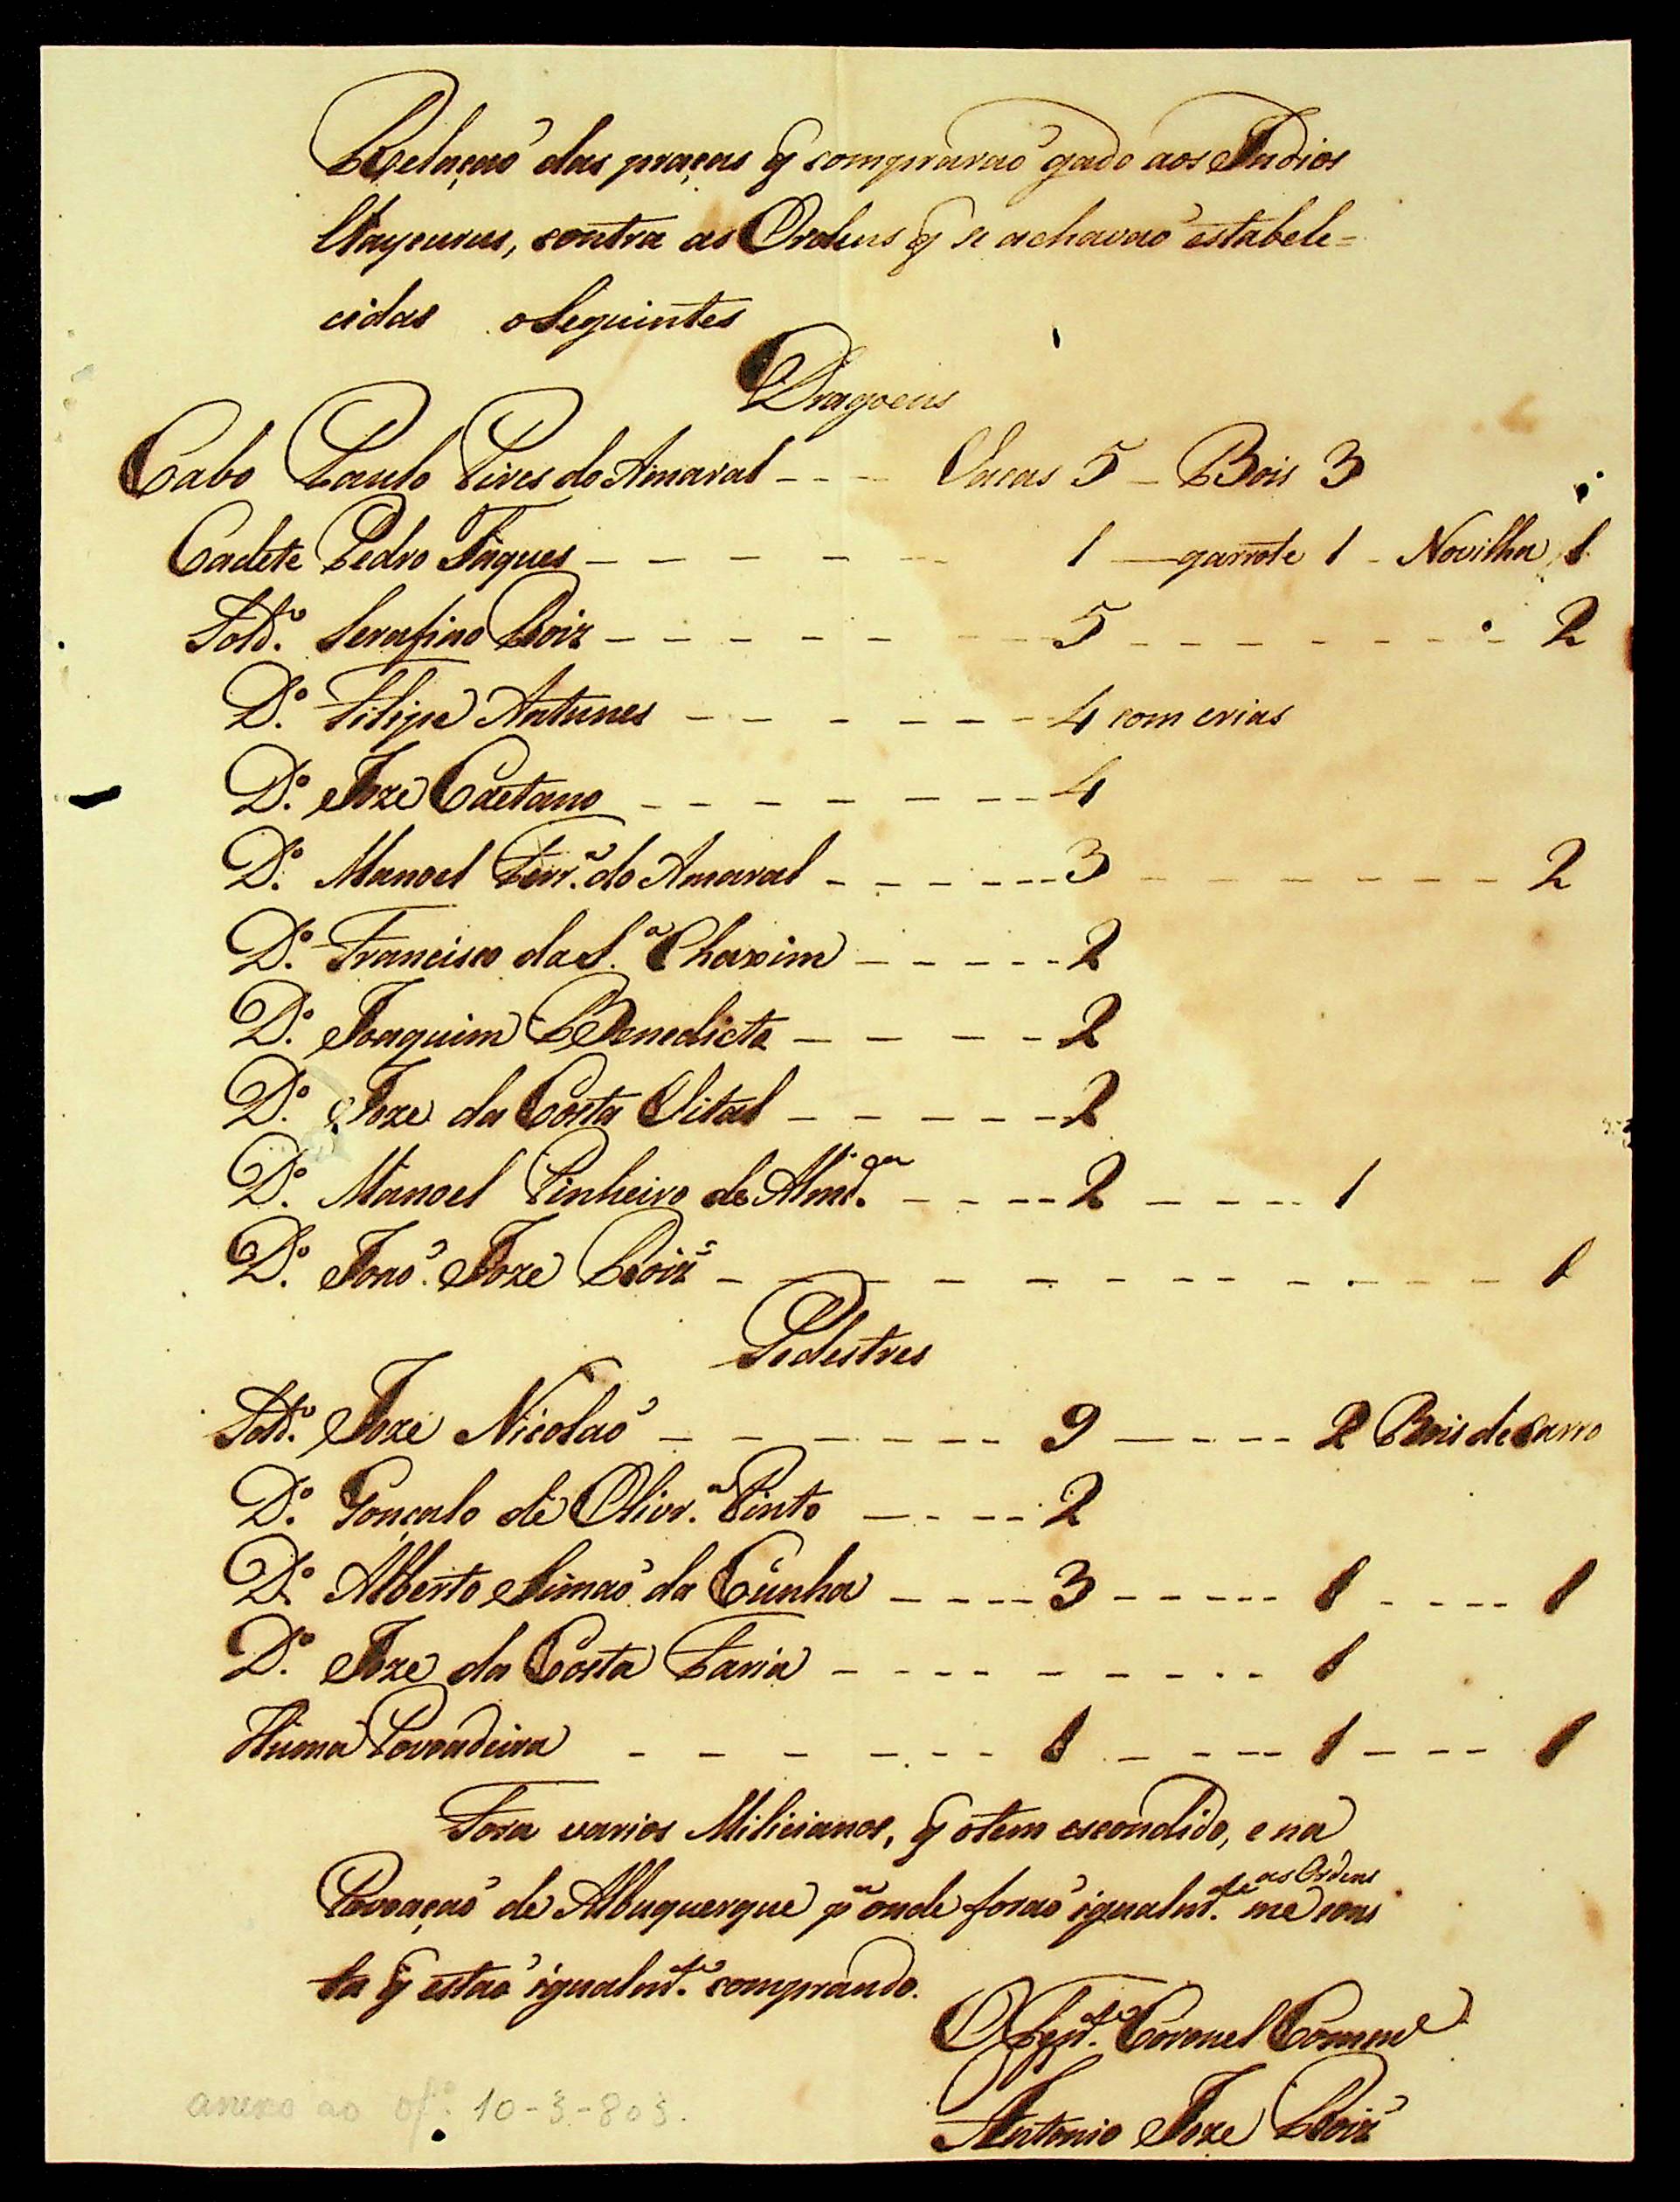 Relaçaõ das praças q̃ compraraõ gado aos Indios
Uaycurus, contra as Ordens q̃ se achavaõ estabele=
cidas os seguintes
Dragoens
Cabo Paulo Pires do Amaral - - - Vacas 5 - Bois 3
Cadete Pedro Taques - - - - - 1 - garrote 1 - Novilha 1
Sold.º Serafino Roiz - - - - - - 5 - - - - - - - 2
D.º Filipe Antunes - - - - - - 4 com crias
D.º Joze Caetano - - - - - - - 4
D.º Manoel Ferr.ª do Amaral - - - - - - 3 - - - - - - - 2
D.º Francisco da S.ª Chaxim - - - - - 2
D.º Joaquim Benedicto - - - - 2
D.º Joze da Costa Vital - - - - - 2
D.º Manoel Pinheiro de Almd.ª - - - - 2 - - - - 1
D.º Joaõ Joze Roiz - - - - - - - - - - - - - 1
Pedestres
Sold.º Joze Nicolaó - - - - - - - 9 - - - - 2 Bois de Carro
D.º Gonçalo de Olivr.ª Pinto - - - - 2
D.º Alberto Simaõ da Cunha - - - - 3 - - - - - 1 - - - - 1
D.º Joze da Costa Faria - - - - - - - - - 1
Huma Povoadeira - - - - - - - 1 - - - - 1 - - - 1
Fora varios Milicianos, q̃ o tem escondido, e na
Povoaçaõ de Albuquerque p.ª onde foraõ igualm.te as Ordens me cons
ta q̃ estaõ igualm.te comprando.
O Ten.te Coronel Comm.e
Antonio Joze Roiz
anexo ao of.º 10-3-803.